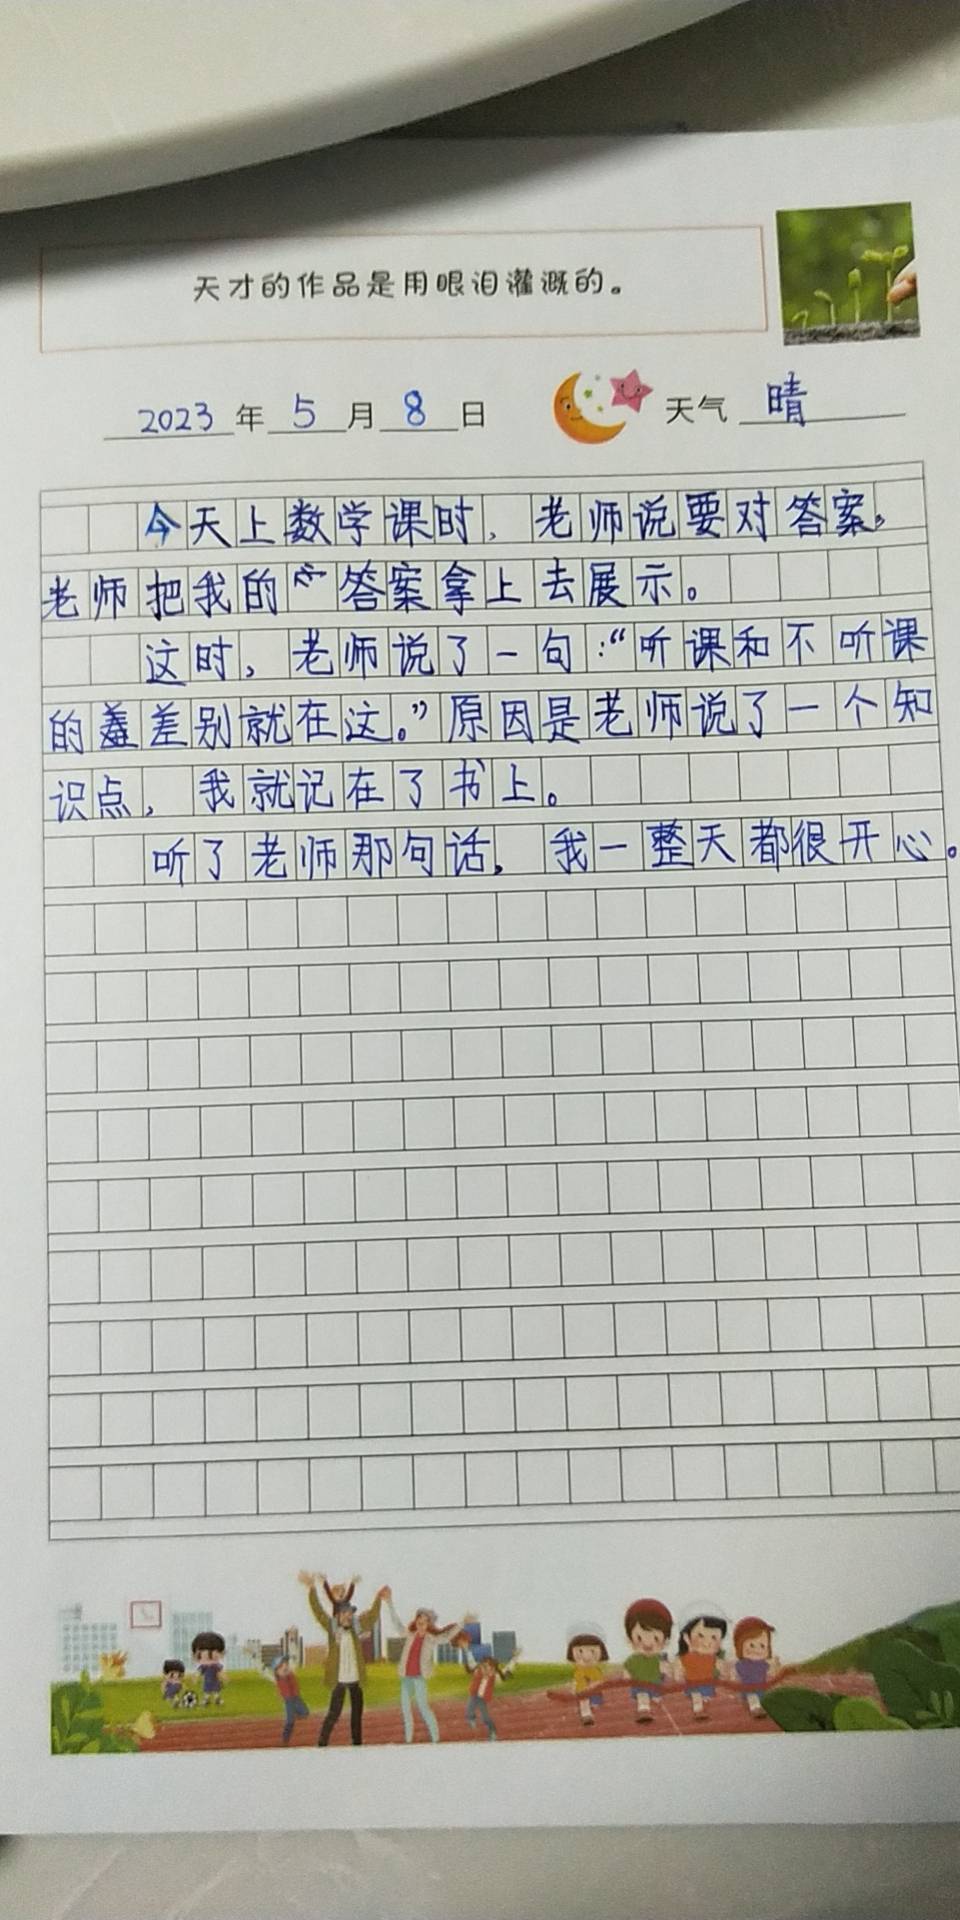 天才的作品是用眼泪灌溉的。
2023年5月8日 天气 晴
今天上数学课时,老师说要对答案,
老师把我的答案拿上去展示。
这时,老师说了一句:“听课和不听课
的差别就在这。”原因是老师说了一个知
识点,我就记在了书上。
听了老师那句话,我一整天都很开心。